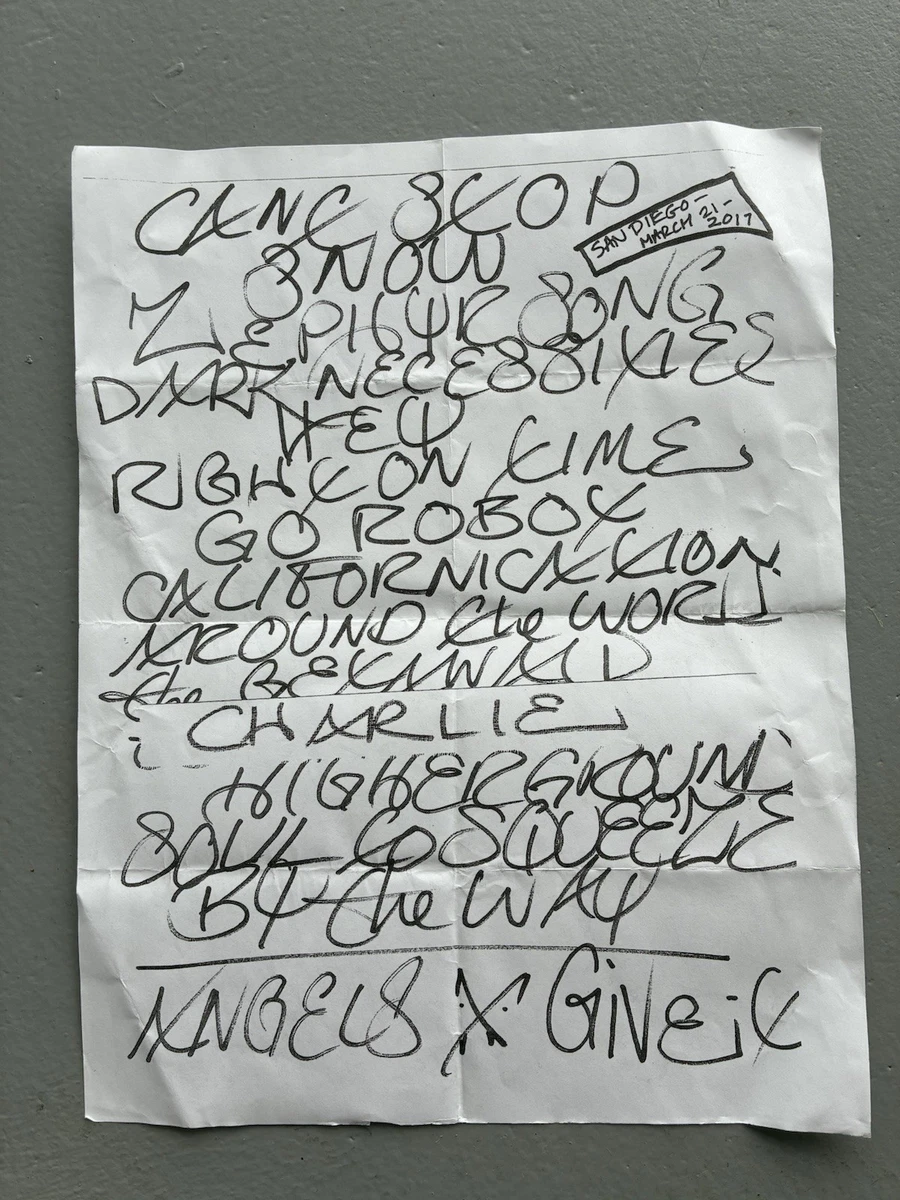 CANT STOP
SAN DIEGO -
MARCH 21 -
2017
SNOW
ZEPHYR SONG
DARK NECESSITIES
HEY
RIGHT ON TIME
GO ROBOT
CALIFORNICATION
AROUND the WORLD
the
CHARLIE
HIGHER GROUND
SOUL to SQUEEZE
BY the WAY
ANGELS
GIVE it